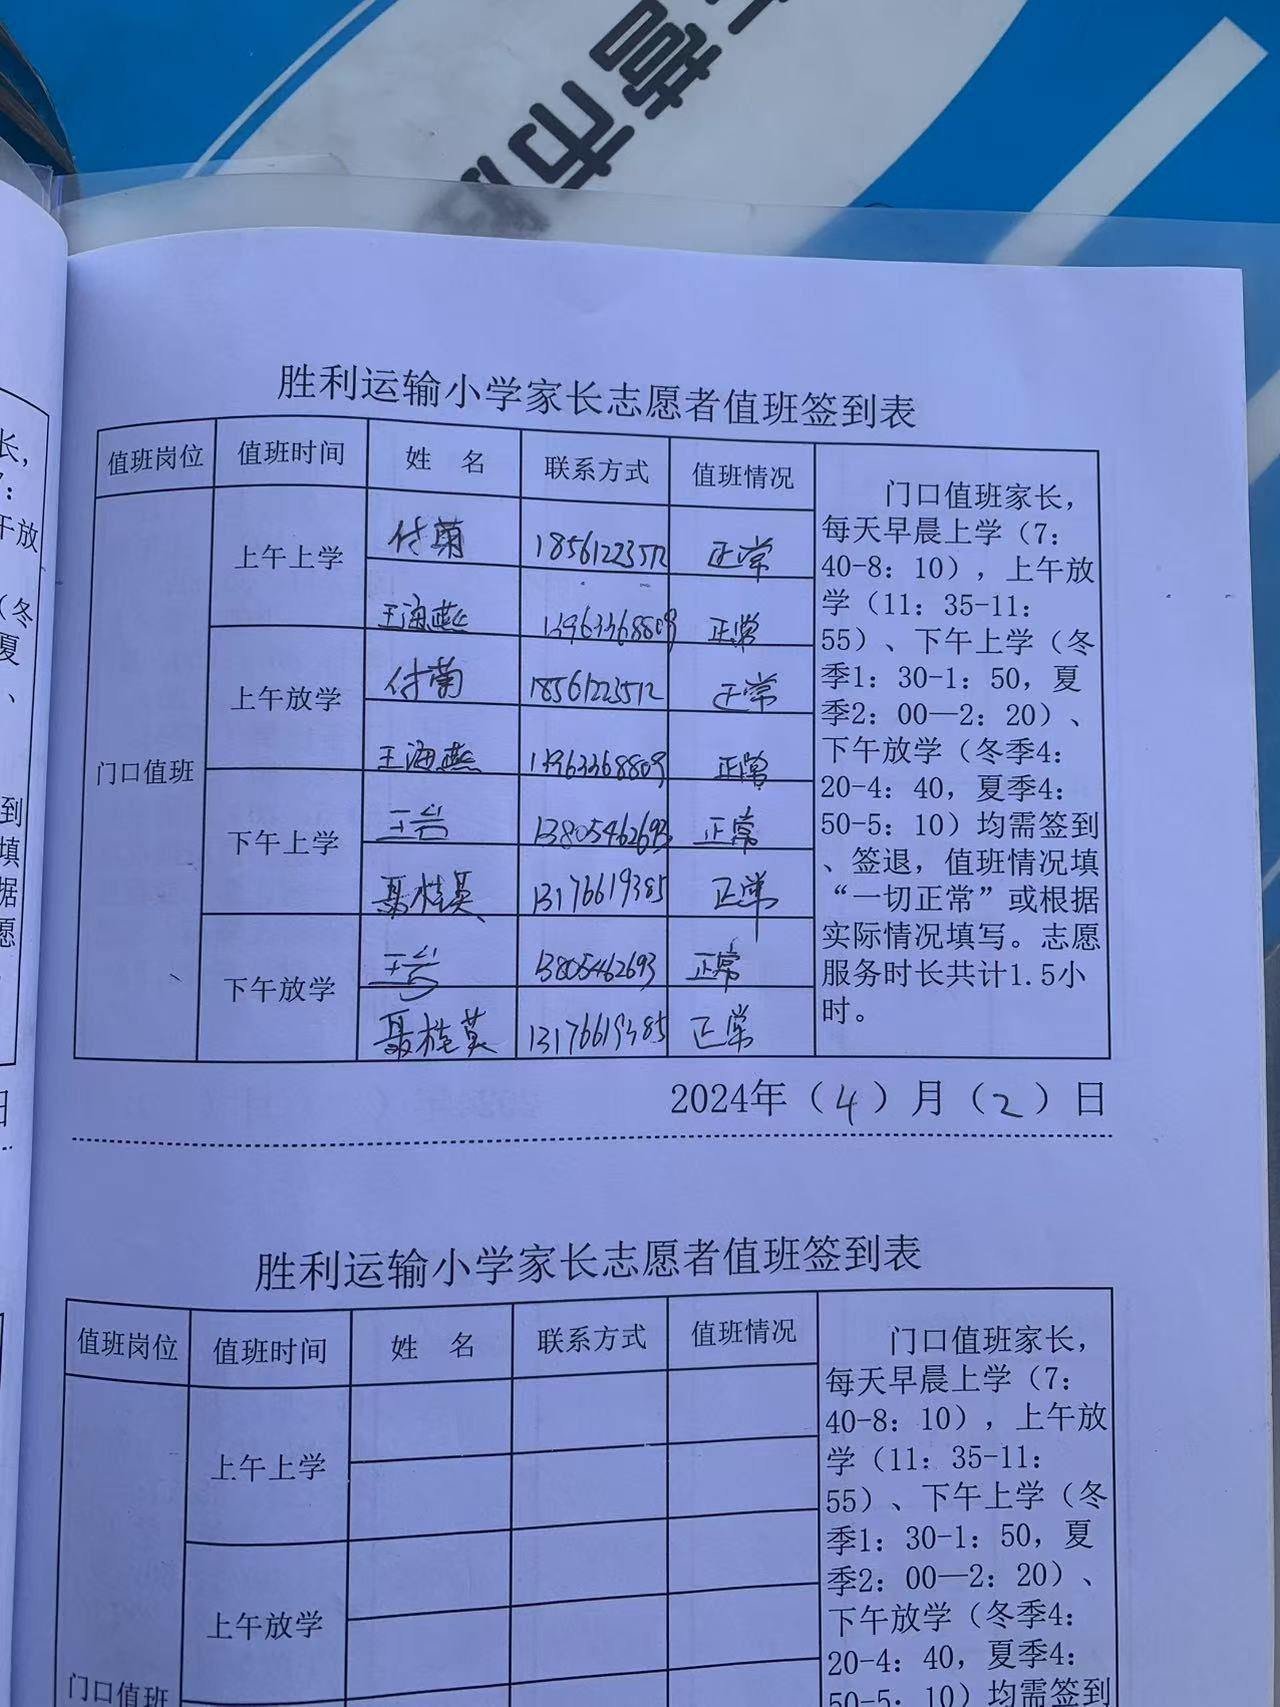 营市
胜利运输小学家长志愿者值班签到表
值班岗位 值班时间 姓 名 联系方式 值班情况
门口值班
上午上学 付菊 18561223512 正常
王海燕 13963368809 正常
上午放学 付菊 18561223512 正常
王海燕 13963368809 正常
下午上学 王岩 13805462693 正常
聂桂英 13176619385 正常
下午放学 王岩 13805462693 正常
聂桂英 13176619385 正常
门口值班家长，
每天早晨上学（7：
40-8：10），上午放
学（11：35-11：
55）、下午上学（冬
季1：30-1：50，夏
季2：00—2：20）、
下午放学（冬季4：
20-4：40，夏季4：
50-5：10）均需签到
、签退，值班情况填
“一切正常”或根据
实际情况填写。志愿
服务时长共计1.5小
时。
2024年（4）月（2）日
胜利运输小学家长志愿者值班签到表
值班岗位 值班时间 姓 名 联系方式 值班情况
上午上学
上午放学
门口值班
门口值班家长，
每天早晨上学（7：
40-8：10），上午放
学（11：35-11：
55）、下午上学（冬
季1：30-1：50，夏
季2：00—2：20）、
下午放学（冬季4：
20-4：40，夏季4：
50-5：10）均需签到